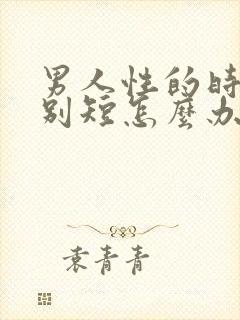 男人性的時
别短怎麼办
袁青青